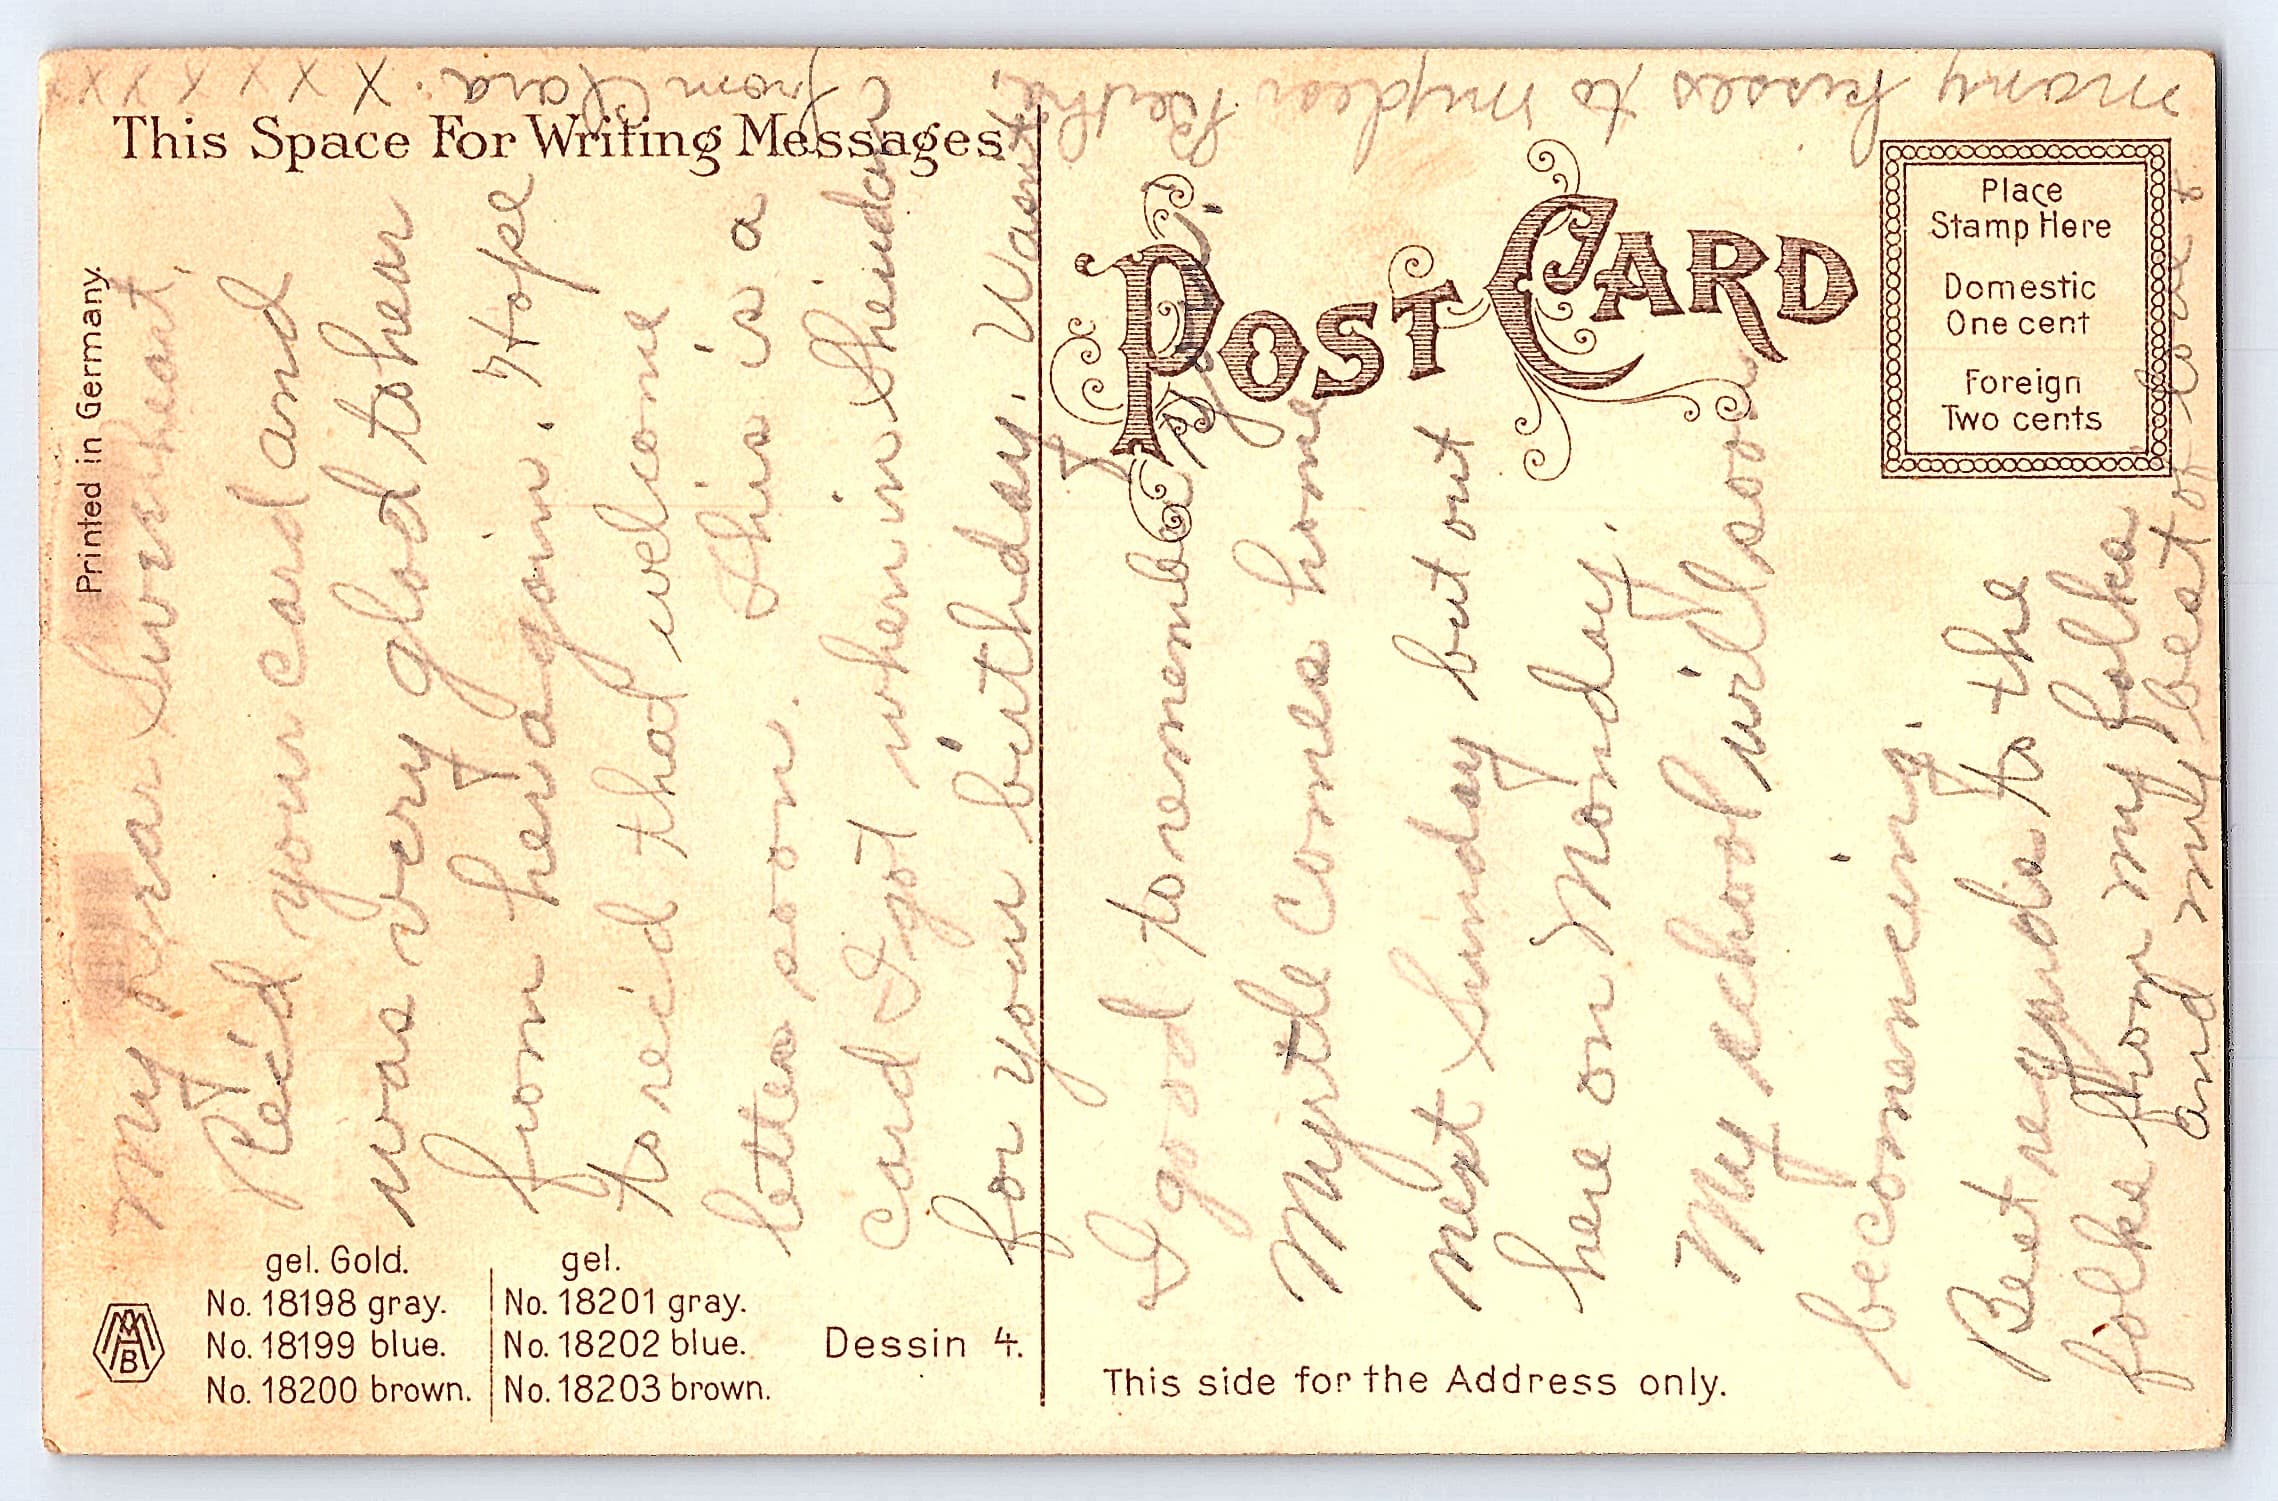 This Space For Writing Messages.
Printed in Germany.
POST CARD
Place
Stamp Here
Domestic
One cent
Foreign
Two cents
My Dear Sweetheart,
Rec'd your card and
was very glad to hear
from her again. Hope
to rec'd that welcome
letter soon. This is a
card I got when in Sheridan
for your birthday. Wasn't
I good to remember it
Myrtle comes home
next Sunday but out
here on Monday.
My school will soon
becomencing.
Best regards to the
folks from my folks
and my best of love &
many kisses to my dear Berthie.
from Clara. X X X X X X
gel. Gold.
No. 18198 gray.
No. 18199 blue.
No. 18200 brown.
gel.
No. 18201 gray.
No. 18202 blue.
No. 18203 brown.
Dessin 4.
This side for the Address only.